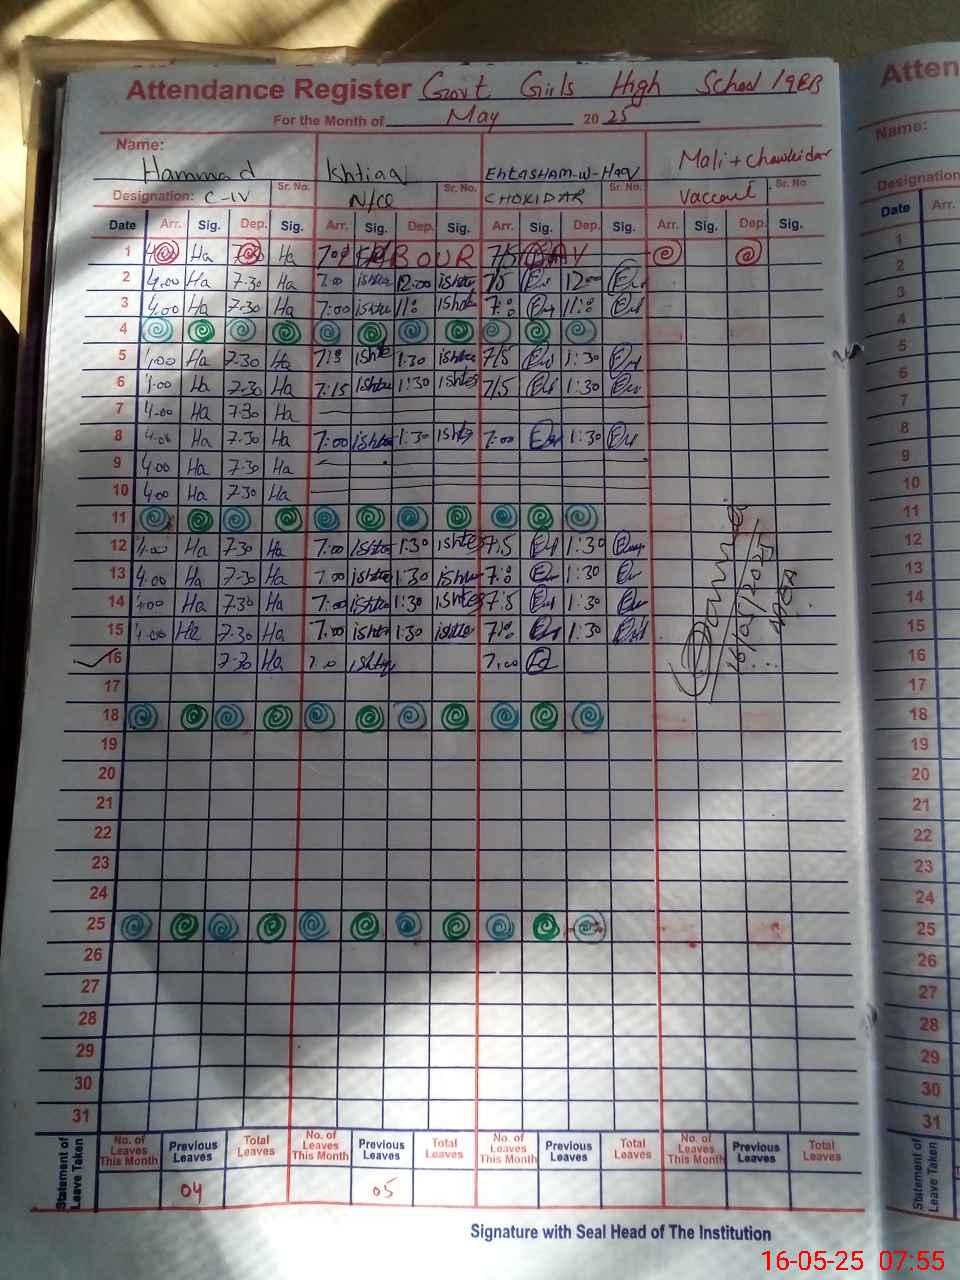 Attendance Register Govt Girls High School 19EB
For the Month of May 20 25
Name: Hammad Ishtiaq EhtASHAM-U-HAQ Mali + chowkidar
Designation: C-IV Sr. No. N/CQ Sr. No. CHOKIDAR Sr. No. Vaccant Sr. No.
Date Arr. Sig. Dep. Sig. Arr. Sig. Dep. Sig. Arr. Sig. Dep. Sig. Arr. Sig. Dep. Sig.
1 Ha Ha BOUR
2 4.00 Ha 7.30 Ha 7.00 ishtia 12.00 ishtia 7/5 12.00
3 4.00 Ha 7.30 Ha 7:00 ishtia 11:0
4
5 4.00 Ha 7.30 Ha ishtia 1:30 ishtia 7/5 1:30
6 4.00 Ha 7.30 Ha 7:15 ishtia 1:30 ishtia 7/5 1:30
7 4.00 Ha 7.30 Ha
8 4.00 Ha 7.30 Ha 7:00 ishtia 1:30 ishtia 7:00 1:30
9 4.00 Ha 7.30 Ha
10 4.00 Ha 7.30 Ha
11
12 4.00 Ha 7.30 Ha 7:00 ishtia 1:30 ishtia 7:5 1:30
13 4.00 Ha 7.30 Ha 7.00 ishtia 1:30 ishtia 1:30
14 4.00 Ha 7.30 Ha 7:00 ishtia 1:30 ishtia 7:5 1:30
15 4.00 Ha 7.30 Ha 7.00 ishtia 1:30 ishtia 1:30
16 7.30 Ha ishtiaq 7.00
16/05/2025
17
18
19
20
21
22
23
24
25
26
27
28
29
30
31
Statement of Leave Taken
No. of Leaves This Month Previous Leaves Total Leaves No. of Leaves This Month Previous Leaves Total Leaves No. of Leaves This Month Previous Leaves Total Leaves No. of Leaves This Month Previous Leaves Total Leaves
04 05
Signature with Seal Head of The Institution
Atten
Name:
Designation
Date Arr.
1
2
3
4
5
6
7
8
9
10
11
12
13
14
15
16
17
18
19
20
21
22
23
24
25
26
27
28
29
30
31
Statement of Leave Taken
16-05-25 07:55